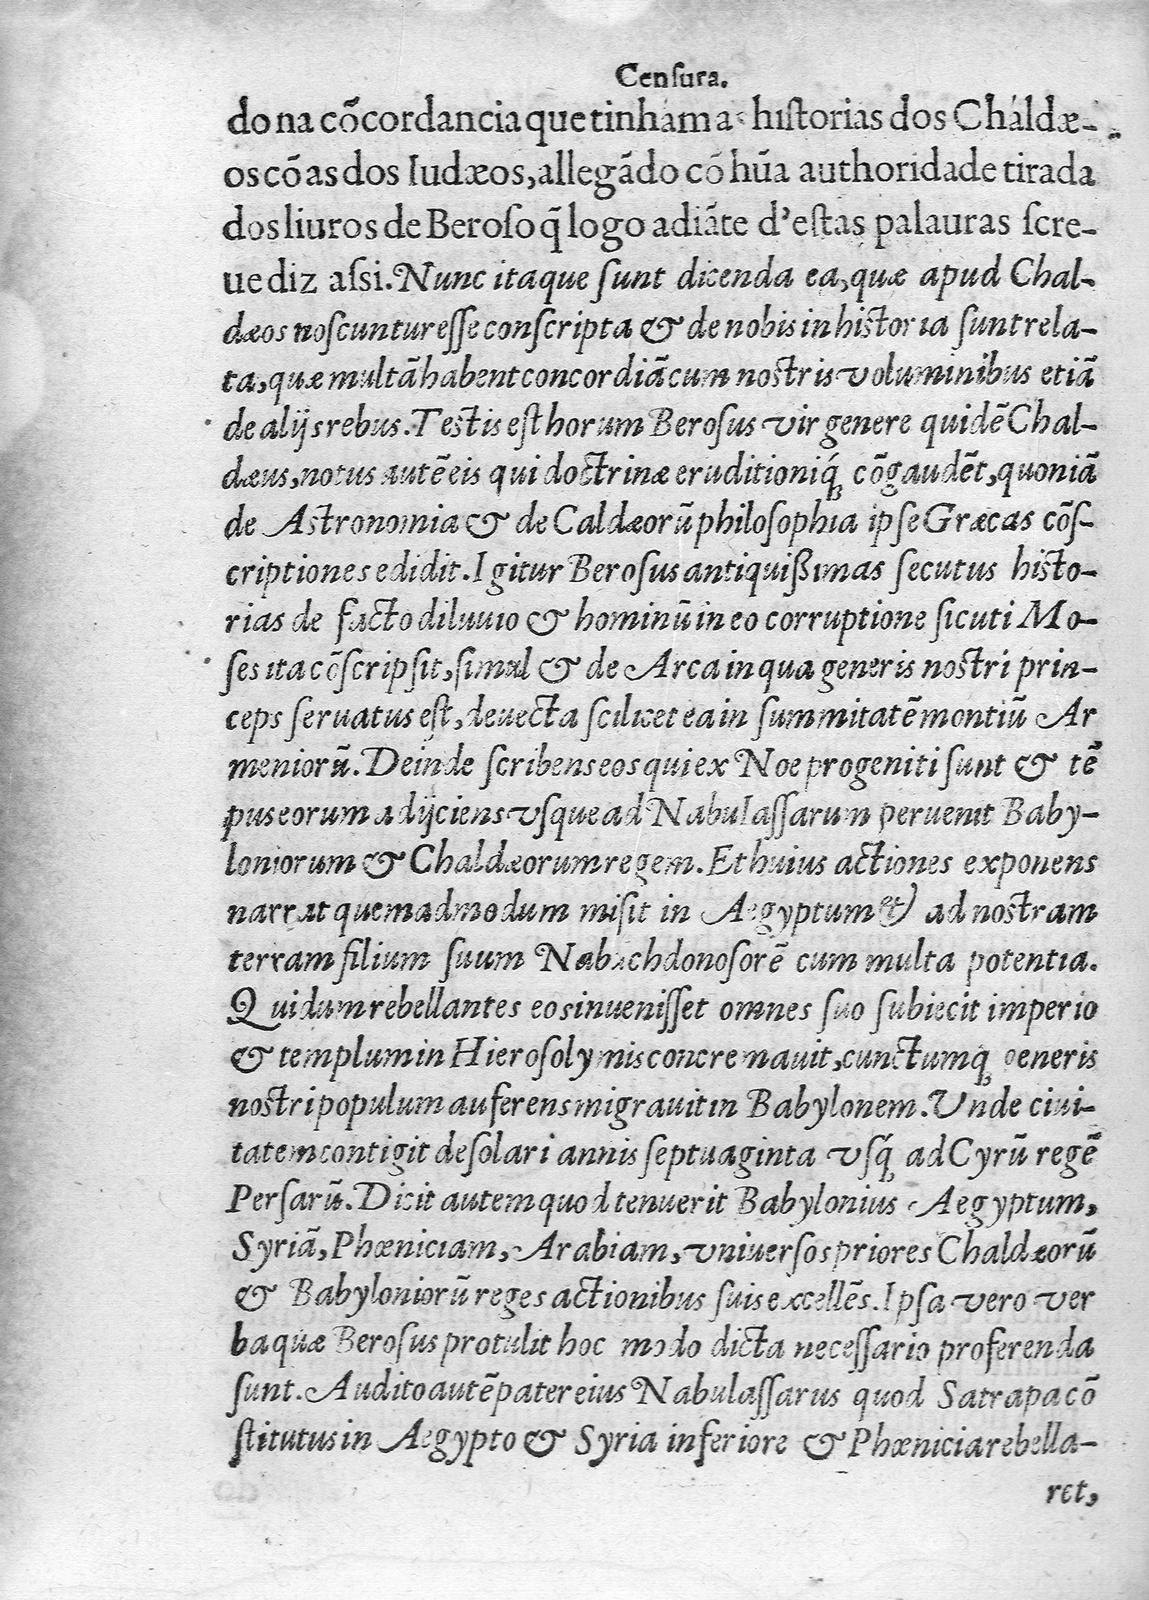 Cenſura.
do na cõcordancia que tinham as hiſtorias dos Chaldæ-
os cõ as dos Iudæos, allegãdo cõ hũa authoridade tirada
dos liuros de Beroſo q̃ logo adiãte d'eſtas palauras ſcre-
ue diz aſsi. Nunc itaque ſunt dicenda ea, quæ apud Chal-
dæos noſcuntur eſſe conſcripta & de nobis in hiſtoria ſunt rela-
ta, quæ multã habent concordiã cum noſtris voluminibus etiã
de alijs rebus. Teſtis eſt horum Beroſus vir genere quidẽ Chal-
dæus, notus autẽ eis qui doctrinæ eruditioniq́; cõgaudẽt, quoniã
de Aſtronomia & de Caldæorũ philoſophia ipſe Græcas cõſ-
criptiones edidit. Igitur Beroſus antiquißimas ſecutus hiſto-
rias de facto diluuio & hominũ in eo corruptione ſicuti Mo-
ſes ita cõſcripſit, ſimul & de Arca in qua generis noſtri prin-
ceps ſeruatus eſt, deuecta ſcilicet ea in ſummitatẽ montiũ Ar
meniorũ. Deinde ſcribens eos qui ex Noe progeniti ſunt & tẽ
pus eorum adijciens vſque ad Nabulaſſarum peruenit Baby-
loniorum & Chaldæorum regem. Et huius actiones exponens
narrat quemadmodum miſit in Aegyptum et ad noſtram
terram filium ſuum Nabachdonoſorẽ cum multa potentia.
Qui dum rebellantes eos inueniſſet omnes ſuo ſubiecit imperio
& templum in Hieroſolymis concremauit, cunctumq; generis
noſtri populum auferens migrauit in Babylonem. Vnde ciui-
tatem contigit deſolari annis ſeptuaginta vſq́; ad Cyrũ regẽ
Perſarũ. Dicit autem quod tenuerit Babylonius Aegyptum,
Syriã, Phœniciam, Arabiam, vniuerſos priores Chaldæorũ
& Babyloniorũ reges actionibus ſuis excellẽs. Ipſa vero ver
ba quæ Beroſus protulit hoc modo dicta neceſſario proferenda
ſunt. Audito autẽ pater eius Nabulaſſarus quod Satrapa cõ
ſtitutus in Aegypto & Syria inferiore & Phœnicia rebella-
ret,